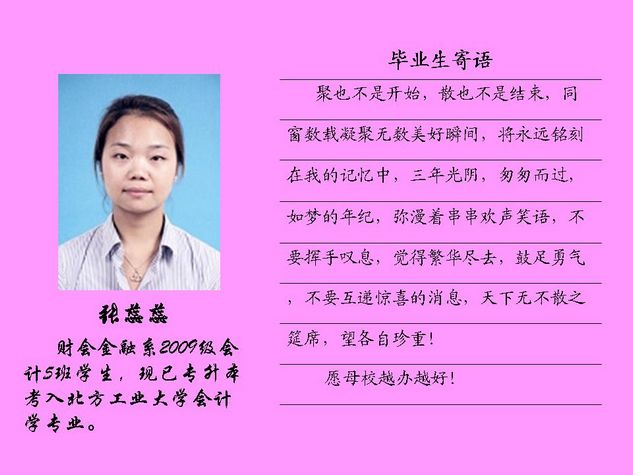 毕业生寄语
聚也不是开始，散也不是结束，同
窗数载凝聚无数美好瞬间，将永远铭刻
在我的记忆中，三年光阴，匆匆而过，
如梦的年纪，弥漫着串串欢声笑语，不
要挥手叹息，觉得繁华尽去，鼓足勇气
，不要互递惊喜的消息，天下无不散之
筵席，望各自珍重！
愿母校越办越好！
张蕊蕊
财会金融系2009级会
计5班学生，现已专升本
考入北方工业大学会计
学专业。